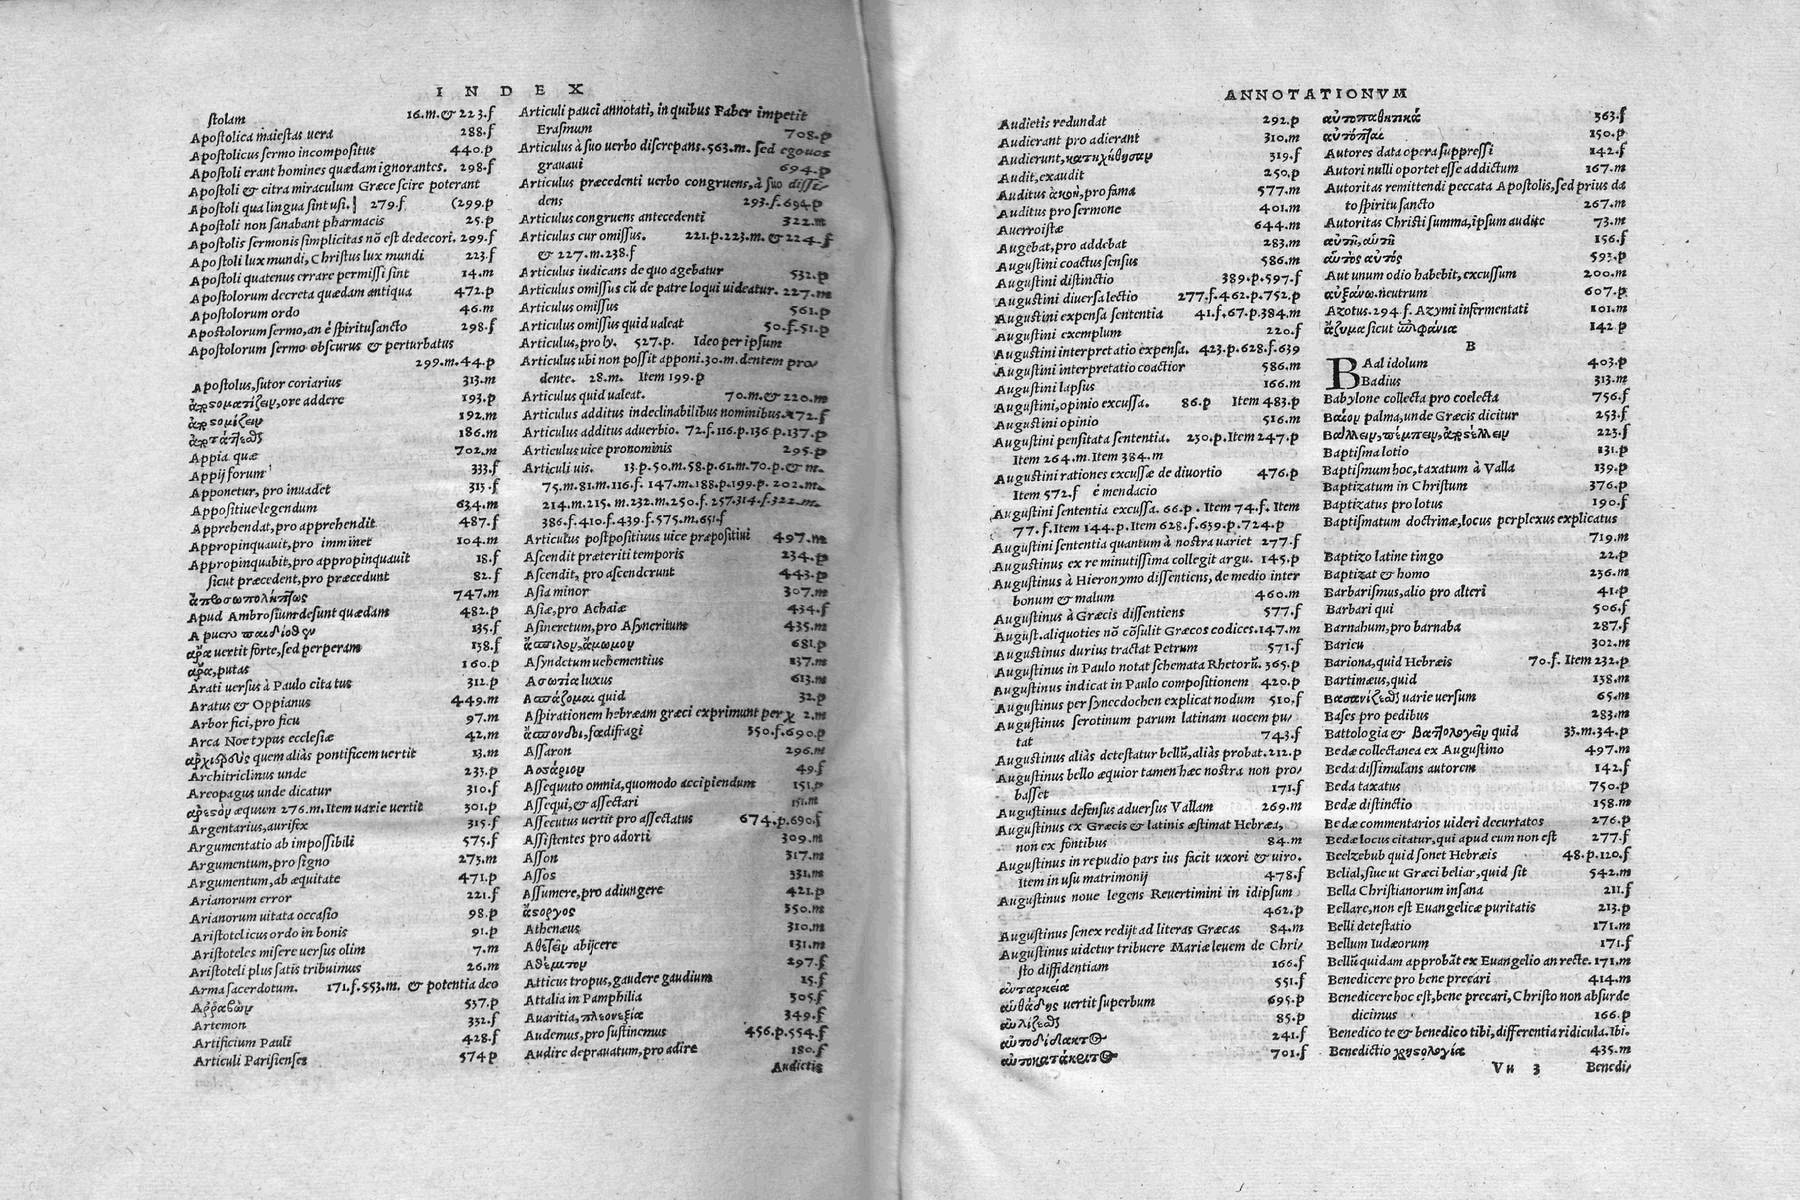 INDEX
stolam 16.m.& 223.f
Apostolica maiestas uera 288.f
Apostolicus sermo incompositus 440.p
Apostoli erant homines quædam ignorantes. 298.f
Apostoli & citra miraculum Græce scire poterant
Apostoli qua lingua sint usi.} 279.f (299.p
Apostoli non sanabant pharmacis 25.p
Apostolis sermonis simplicitas nō est dedecori. 299.f
Apostoli lux mundi, Christus lux mundi 223.f
Apostoli quatenus errare permissi sint 14.m
Apostolorum decreta quædam antiqua 472.p
Apostolorum ordo 46.m
Apostolorum sermo, an è spiritu sancto 298.f
Apostolorum sermo obscurus & perturbatus
299.m.44.p
Apostolus, sutor coriarius 313.m
ἀποστοματίζειν, ore addere 193.p
192.m
186.m
Appia quæ 702.m
Appij forum 333.f
Apponetur, pro inuadet 315.f
Appositiue legendum 634.m
Apprehendat, pro apprehendit 487.f
Appropinquauit, pro imminet 104.m
Appropinquabit, pro appropinquauit 18.f
sicut præcedent, pro præcedunt 82.f
747.m
Apud Ambrosium desunt quædam 482.p
A puero παιδιόθεν 135.f
ἆρα uertit forte, sed perperam 138.f
ἄρα, putas 160.p
Arati uersus à Paulo citatus 312.p
Aratus & Oppianus 449.m
Arbor fici, pro ficu 97.m
Arca Noe typus ecclesiæ 42.m
ἀρχιερεὺς quem aliàs pontificem uertit 13.m
Architriclinus unde 233.p
Areopagus unde dicatur 310.f
ἀρεσὸν æquum 276.m. Item uarie uertit 301.p
Argentarius, aurifex 315.f
Argumentatio ab impossibili 575.f
Argumentum, pro signo 273.m
Argumentum, ab æquitate 471.p
Arianorum error 221.f
Arianorum uitata occasio 98.p
Aristotelicus ordo in bonis 91.p
Aristoteles misere uersus olim 7.m
Aristoteli plus satis tribuimus 26.m
Arma sacerdotum. 171.f.553.m. & potentia deo
Ἀρραβὼν 537.p
Artemon 332.f
Artificium Pauli 428.f
Articuli Parisienses 574 p
Articuli pauci annotati, in quibus Faber impetit
Erasmum 708.p
Articulus à suo uerbo discrepans. 563.m. sed egouos
grauaui 694.p
Articulus præcedenti uerbo congruens, à suo dissi-
dens 293.f.694.p
Articulus congruens antecedenti 322.m
Articulus cur omissus. 221.p.223.m. & 224.f
& 227.m.238.f
Articulus iudicans de quo agebatur 532.p
Articulus omissus cū de patre loqui uideatur. 227.m
Articulus omissus 561.p
Articulus omissus quid ualeat 50.f.51.p
Articulus, pro ly. 527.p. Ideo per ipsum
Articulus ubi non possit apponi. 30.m. dentem pro/
dente. 28.m. Item 199.p
Articulus quid ualeat. 70.m.& 220.m
Articulus additus indeclinabilibus nominibus. 172.f
Articulus additus aduerbio. 72.f.116.p.136.p.137.p
Articulus uice pronominis 295.p
Articuli uis. 13.p.50.m.58.p.61.m.70.p.& m.
75.m.81.m.116.f. 147.m.188.p.199.p. 202.m.
214.m.215. m.232.m.250.f. 257.314.f.322.m.
386.f.410.f.439.f.575.m.651.f
Articulus postpositiuus uice præpositiui 497.m
Ascendit præteriti temporis 234.p
Ascendit, pro ascenderunt 443.p
Asia minor 307.m
Asiæ, pro Achaiæ 434.f
Asineretum, pro Asyncritum 435.m
ἄσπιλον, ἄμωμον 681.p
Asyndetum uehementius 137.m
Ἀσωτία luxus 613.m
Ἀσπάζομαι quid 32.p
Aspirationem hebræam græci exprimunt per χ 2.m
ἄσπονδοι, fœdifragi 550.f.690.p
Assaron 296.m
Ἀσσάριον 49.f
Assequuto omnia, quomodo accipiendum 151.p
Assequi, & assectari 151.m
Assecutus uertit pro assectatus 674.p.690.f
Assistentes pro adorti 309.m
Asson 317.m
Assos 331.m
Assumere, pro adiungere 421.p
ἄστοργος 350.m
Athenæus 310.m
Ἀθετεῖν abijcere 131.m
Ἀθέμιτον 297.f
Atticus tropus, gaudere gaudium 15.f
Attalia in Pamphilia 305.f
Auaritia, πλεονεξία 349.f
Audemus, pro sustinemus 456.p.554.f
Audire deprauatum, pro adire 180.f
Audietis
ANNOTATIONVM
Audietis redundat 292.p
Audierant pro adierant 310.m
Audierunt, κατηχήθησαν 319.f
Audit, exaudit 250.p
Auditus ἀκοὴ, pro fama 577.m
Auditus pro sermone 401.m
Auerroistæ 644.m
Augebat, pro addebat 283.m
Augustini coactus sensus 586.m
Augustini distinctio 389.p.597.f
Augustini diuersa lectio 277.f.462.p.752.p
Augustini expensa sententia 41.f.67.p.384.m
Augustini exemplum 220.f
Augustini interpretatio expensa. 423.p.628.f.639
Augustini interpretatio coactior 586.m
Augustini lapsus 166.m
Augustini, opinio excussa. 86.p Item 483.p
Augustini opinio 516.m
Augustini pensitata sententia. 230.p. Item 247.p
Item 264.m. Item 384.m
Augustini rationes excussæ de diuortio 476.p
Item 572.f è mendacio
Augustini sententia excussa. 66.p. Item 74.f. Item
77. f. Item 144.p. Item 628.f.639.p.724.p
Augustini sententia quantum à nostra uariet 277.f
Augustinus ex re minutissima collegit argu. 145.p
Augustinus à Hieronymo dissentiens, de medio inter
bonum & malum 460.m
Augustinus à Græcis dissentiens 577.f
August. aliquoties nō cōsulit Græcos codices. 147.m
Augustinus durius tractat Petrum 571.f
Augustinus in Paulo notat schemata Rhetorū. 365.p
Augustinus indicat in Paulo compositionem 420.p
Augustinus per synecdochen explicat nodum 510.f
Augustinus serotinum parum latinam uocem pu/
tat 743.f
Augustinus aliàs detestatur bellū, aliàs probat. 212.p
Augustinus bello æquior tamen hæc nostra non pro/
basset 171.f
Augustinus defensus aduersus Vallam 269.m
Augustinus ex Græcis & latinis æstimat Hebræa,
non ex fontibus 84.m
Augustinus in repudio pars ius facit uxori & uiro.
Item in usu matrimonij 478.f
Augustinus noue legens Reuertimini in idipsum
462.p
Augustinus senex redijt ad literas Græcas 84.m
Augustinus uidetur tribuere Mariæ leuem de Chri/
sto diffidentiam 166.f
αὐταρκεία 551.f
αὐθάδης uertit superbum 695.p
αὐλίζεσθαι 85.p
αὐτοδίδακτος 241.f
αὐτοκατάκριτος 701.f
αὐτοπαθητικά 363.f
αὐτόπται 150.p
Autores data opera suppressi 142.f
Autori nulli oportet esse addictum 167.m
Autoritas remittendi peccata Apostolis, sed prius da
to spiritu sancto 267.m
Autoritas Christi summa, ipsum audite 73.m
αὐτῇ, αὑτῇ 156.f
αὑτὸς αὐτός 593.p
Aut unum odio habebit, excussum 200.m
αὐξάνω neutrum 607.p
Azotus. 294 f. Azymi infermentati 101.m
ἄζυμα sicut ἐπιφάνια 142 p
B
BAal idolum 403.p
Badius 313.m
Babylone collecta pro coelecta 756.f
Βαίον palma, unde Græcis dicitur 253.f
Βάλλειν, πέμπειν, ἀποστέλλειν 223.f
Baptisma lotio 131.p
Baptismum hoc, taxatum à Valla 139.p
Baptizatum in Christum 376.p
Baptizatus pro lotus 190.f
Baptismatum doctrinæ, locus perplexus explicatus
719.m
Baptizo latine tingo 22.p
Baptizat & homo 236.m
Barbarismus, alio pro alteri 41.p
Barbari qui 506.f
Barnahum, pro barnaba 287.f
Baricu 302.m
Bariona, quid Hebræis 70.f. Item 232.p
Bartimæus, quid 138.m
Βασανίζεσθαι uarie uersum 65.m
Bases pro pedibus 283.m
Battologia & βαττολογεῖν quid 33.m.34.p
Bedæ collectanea ex Augustino 497.m
Beda dissimulans autorem 142.f
Beda taxatus 750.p
Bedæ distinctio 158.m
Bedæ commentarios uideri decurtatos 276.p
Bedæ locus citatur, qui apud eum non est 277.f
Beelzebub quid sonet Hebræis 48.p.120.f
Belial, siue ut Græci beliar, quid sit 542.m
Bella Christianorum insana 211.f
Bellare, non est Euangelicæ puritatis 213.p
Belli detestatio 171.m
Bellum Iudæorum 171.f
Bellū quidam approbāt ex Euangelio an recte. 171.m
Benedicere pro bene precari 414.m
Benedicere hoc est, bene precari, Christo non absurde
dicimus 166.p
Benedico te & benedico tibi, differentia ridicula. Ibi.
Benedictio χρηστολογία 435.m
Vu 3 Benedi/